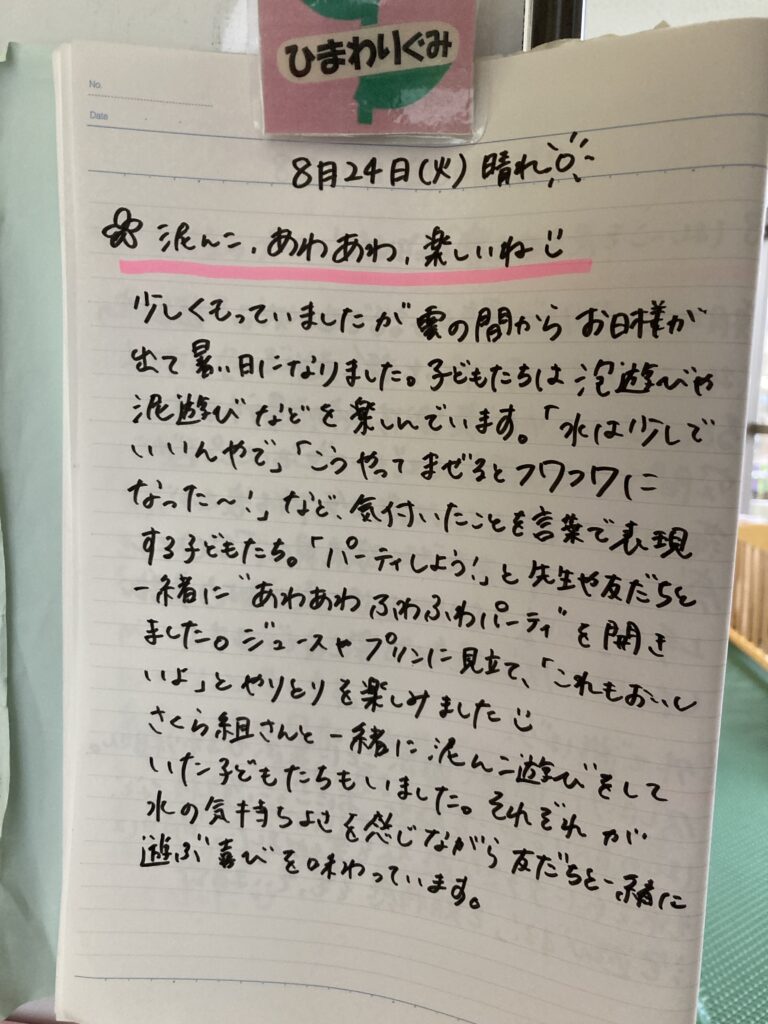 ひまわりぐみ
No.
Date
8月24日(火) 晴れ
泥んこ、あわあわ、楽しいね
少しくもっていましたが雲の間からお日様が
出て暑い日になりました。子どもたちは泡遊びや
泥遊びなどを楽しんでいます。「水は少しで
いいんやで」「こうやってまぜるとフワフワに
なった〜!」など、気付いたことを言葉で表現
する子どもたち。「パーティしよう!」と先生や友だちと
一緒に"あわあわふわふわパーティ"を開き
ました。ジュースやプリンに見立て、「これもおいし
いよ」とやりとりを楽しみました
さくら組さんと一緒に泥んこ遊びをして
いた子どもたちもいました。それぞれが
水の気持ちよさを感じながら友だちと一緒に
遊ぶ喜びを味わっています。